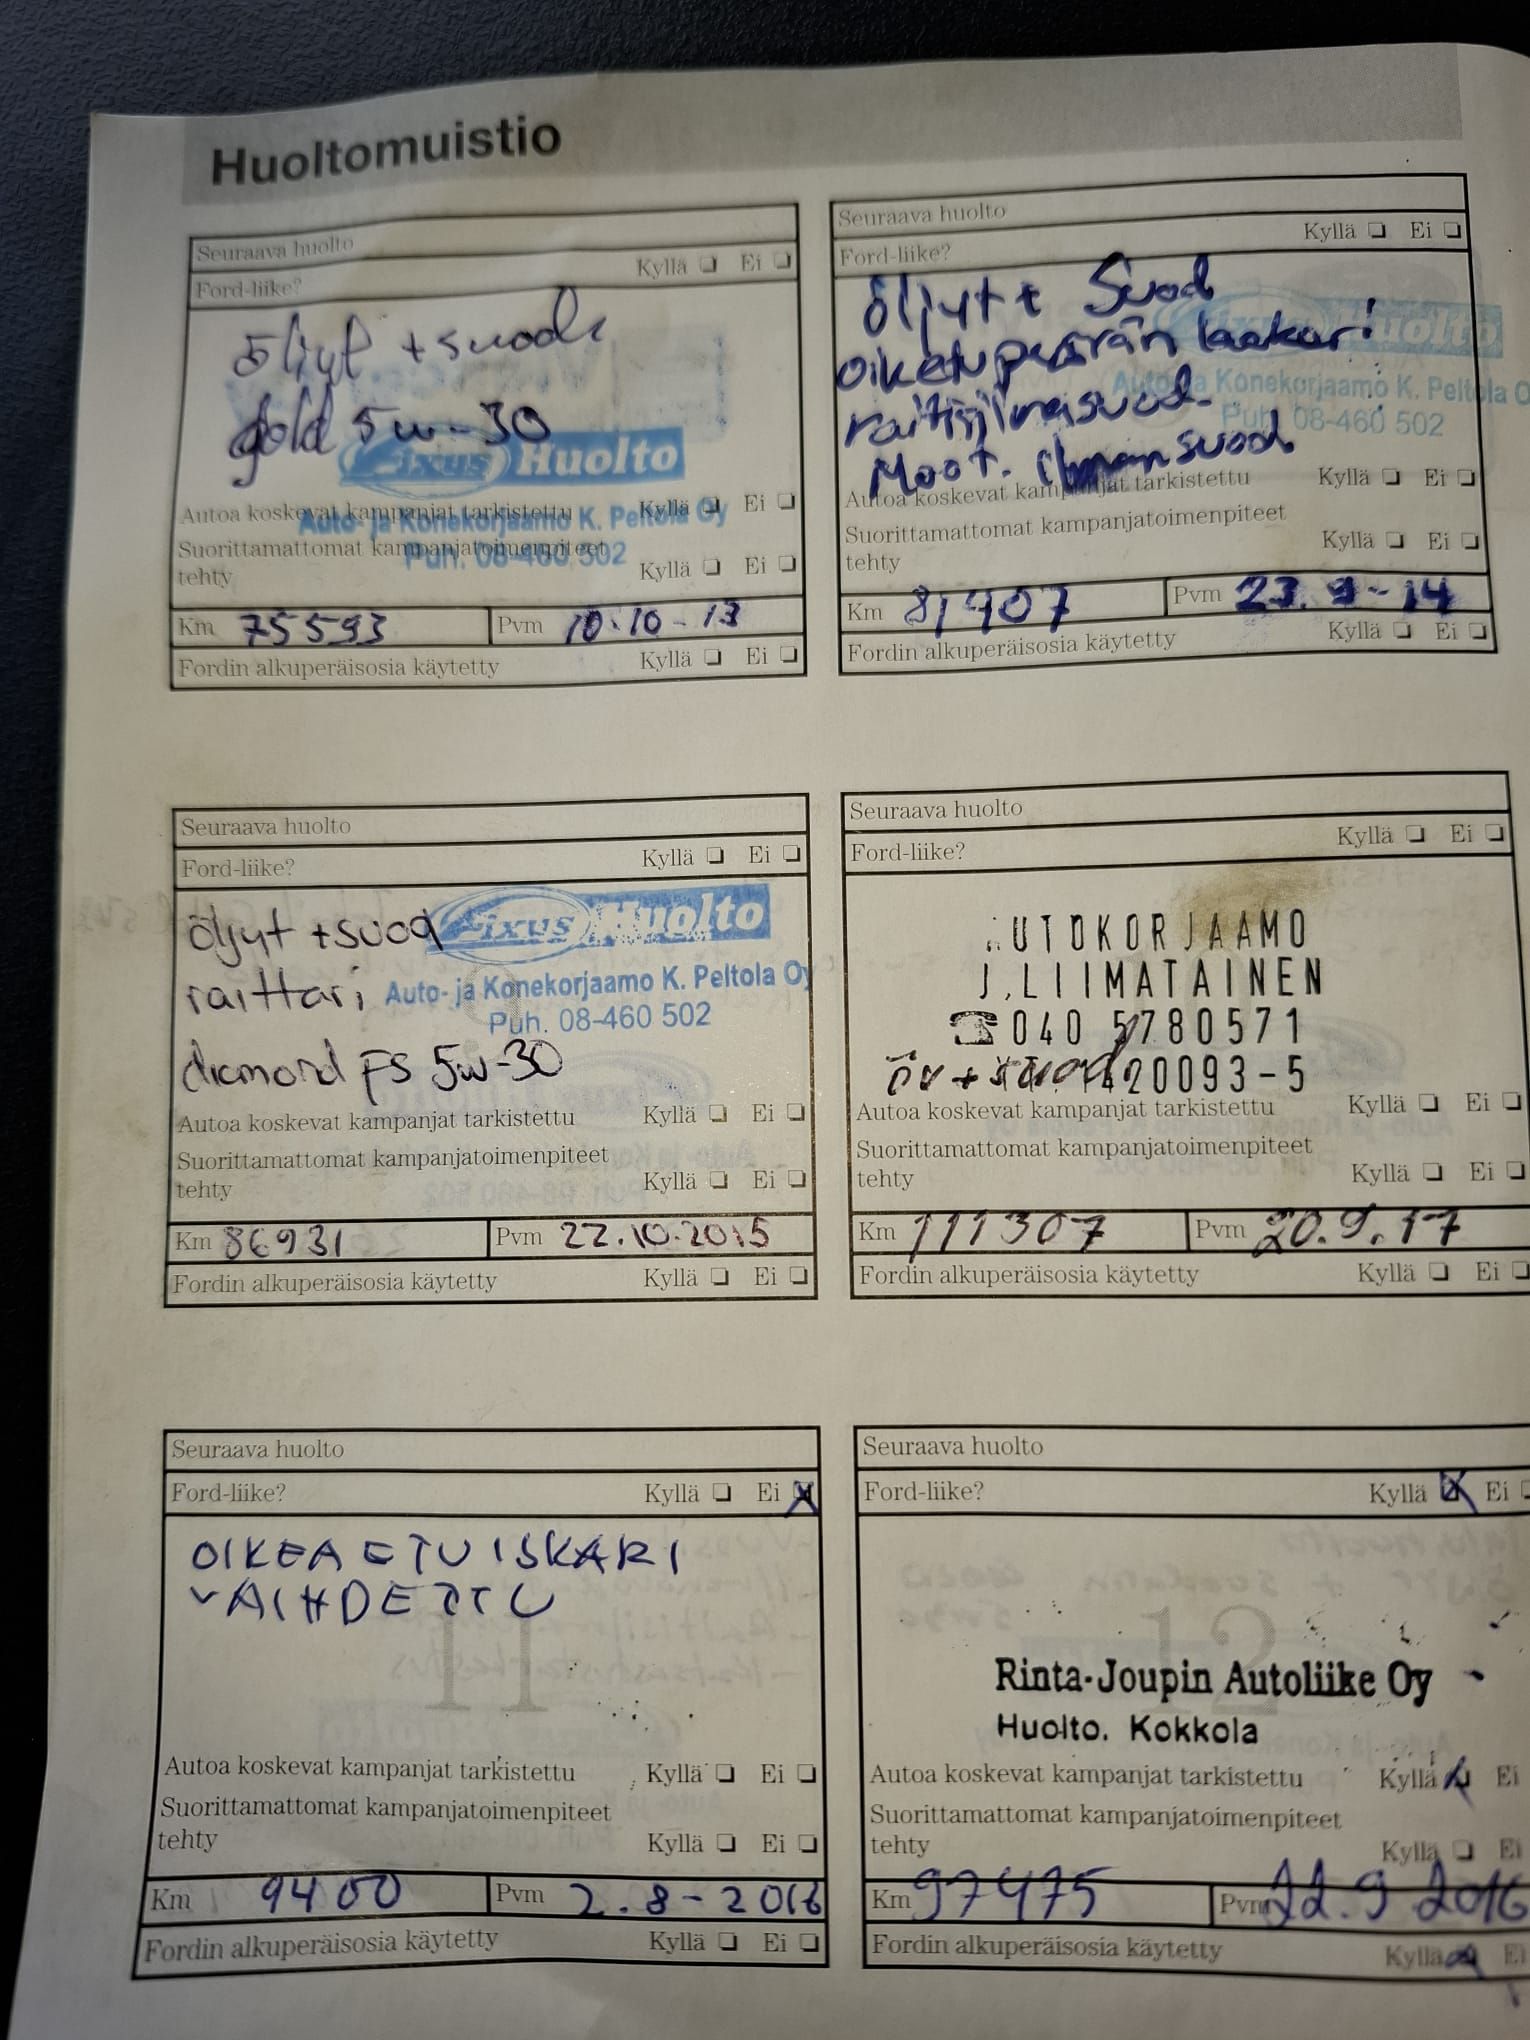 Huoltomuistio
Seuraava huolto
Ford-liike? Kyllä Ei
öljyt + suod
gold 5w-30
Fixus Huolto
Autoa koskevat kampanjat tarkistettu Kyllä Ei
Auto- ja Konekorjaamo K. Peltola Oy
Suorittamattomat kampanjatoimenpiteet
Puh. 08-460 502
tehty Kyllä Ei
Km 75593 Pvm 10.10-13
Fordin alkuperäisosia käytetty Kyllä Ei
Seuraava huolto
Ford-liike? Kyllä Ei
öljyt + Suod
Fixus Huolto
oik etupyörän laakeri
Auto- ja Konekorjaamo K. Peltola O
raitisilmasuod.
Puh. 08-460 502
Moot. ilmansuod
Autoa koskevat kampanjat tarkistettu Kyllä Ei
Suorittamattomat kampanjatoimenpiteet
tehty Kyllä Ei
Km 81407 Pvm 23.9-14
Fordin alkuperäisosia käytetty Kyllä Ei
Seuraava huolto
Ford-liike? Kyllä Ei
öljyt + suod Fixus Huolto
raittari Auto- ja Konekorjaamo K. Peltola Oy
Puh. 08-460 502
diamond FS 5w-30
Autoa koskevat kampanjat tarkistettu Kyllä Ei
Suorittamattomat kampanjatoimenpiteet
tehty Kyllä Ei
Km 86931 Pvm 22.10.2015
Fordin alkuperäisosia käytetty Kyllä Ei
Seuraava huolto
Ford-liike? Kyllä Ei
UTOKORJAAMO
J.LIIMATAINEN
040 5780571
öv + suod 1420093-5
Autoa koskevat kampanjat tarkistettu Kyllä Ei
Suorittamattomat kampanjatoimenpiteet
tehty Kyllä Ei
Km 111307 Pvm 20.9.17
Fordin alkuperäisosia käytetty Kyllä Ei
Seuraava huolto
Ford-liike? Kyllä Ei
OIKEA ETU ISKARI
VAIHDETTU
11
Autoa koskevat kampanjat tarkistettu Kyllä Ei
Suorittamattomat kampanjatoimenpiteet
tehty Kyllä Ei
Km 9400 Pvm 2.8-2016
Fordin alkuperäisosia käytetty Kyllä Ei
Seuraava huolto
Ford-liike? Kyllä Ei
12
Rinta-Joupin Autoliike Oy
Huolto. Kokkola
Autoa koskevat kampanjat tarkistettu Kyllä Ei
Suorittamattomat kampanjatoimenpiteet
tehty Kyllä Ei
Km 97475 Pvm 22.9 2016
Fordin alkuperäisosia käytetty Kyllä Ei